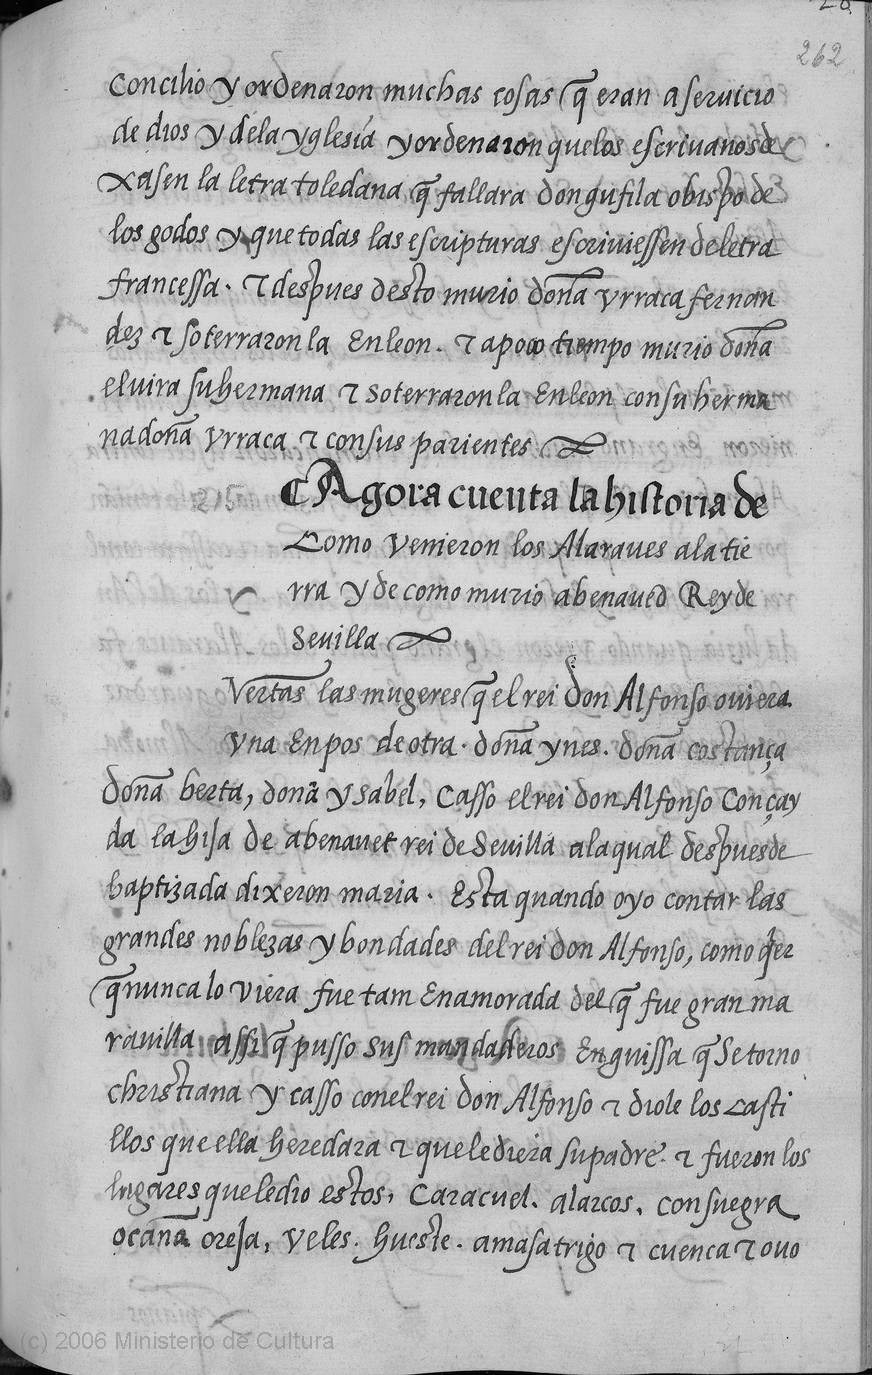 262
Concilio y ordenaron muchas cosas q̃ eran a seruicio
de dios y dela yglesia y ordenaron quelos escriuanos de
xasen la letra toledana q̃ fallara don gufila obispo de
los godos y que todas las escripturas escriuiessen de letra
francessa. τ despues desto murio doña vrraca fernan
dez τ soterraron la En leon. τ a poco tiempo murio doña
eluira su hermana τ soterraron la En leon con su herma
na doña vrraca τ con sus parientes
¶ Agora cuenta la historia de
Como venieron los Alaraues ala tie
rra y de como murio abenaued Rey de
Seuilla
Vertas las mugeres q̃ el rei don Alfonso ouiera
vna En pos de otra. doña ynes. doña costança
doña berta, doña ysabel, Casso el rei don Alfonso Con çay
da la hija de abenauet rei de Seuilla ala qual despues de
baptizada dixeron maria. Esta quando oyo contar las
grandes noblezas y bondades del rei don Alfonso, como q̃er
q̃ nunca lo viera fue tam Enamorada del q̃ fue gran ma
rauilla assi q̃ pusso sus mandaderos En guissa q̃ Se torno
christiana y casso con el rei don Alfonso τ diole los casti
llos que ella heredara τ que le diera su padre. τ fueron los
lugares que le dio estos, Caracuel. alarcos, consuegra
ocaña oreja, veles. hueste. amasatrigo τ cuenca τ ouo
(c) 2006 Ministerio de Cultura